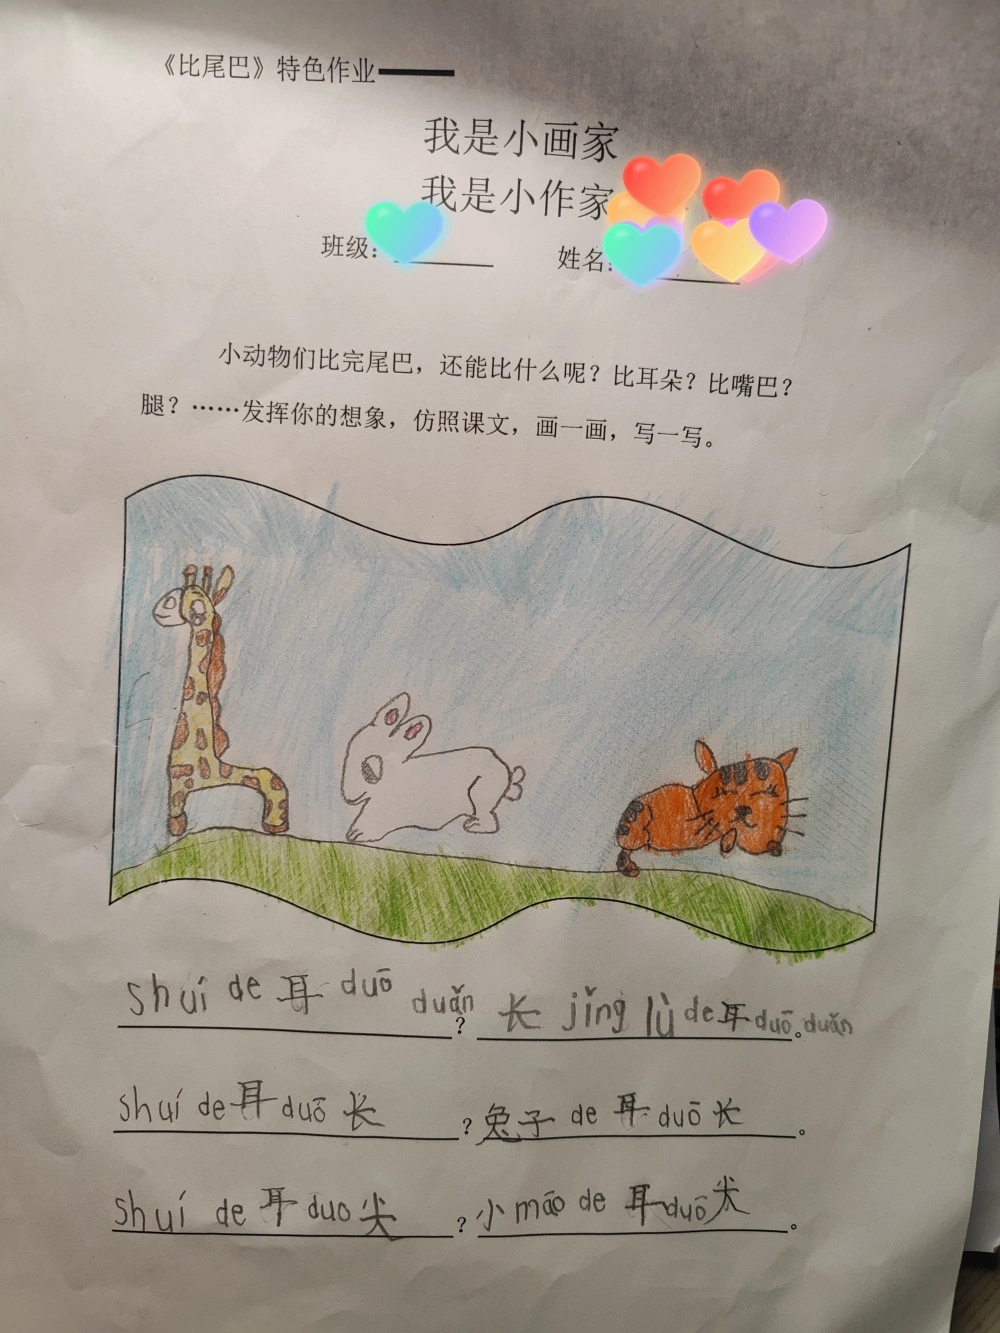 《比尾巴》特色作业——
我是小画家
我是小作家
班级： 姓名：
小动物们比完尾巴，还能比什么呢？比耳朵？比嘴巴？
腿？……发挥你的想象，仿照课文，画一画，写一写。
shuí de 耳 duō duǎn？长 jǐng lù de 耳 duō duǎn。
shuí de 耳 duō 长？兔子 de 耳 duō 长。
shuí de 耳 duo 尖？小 māo de 耳 duō 尖。